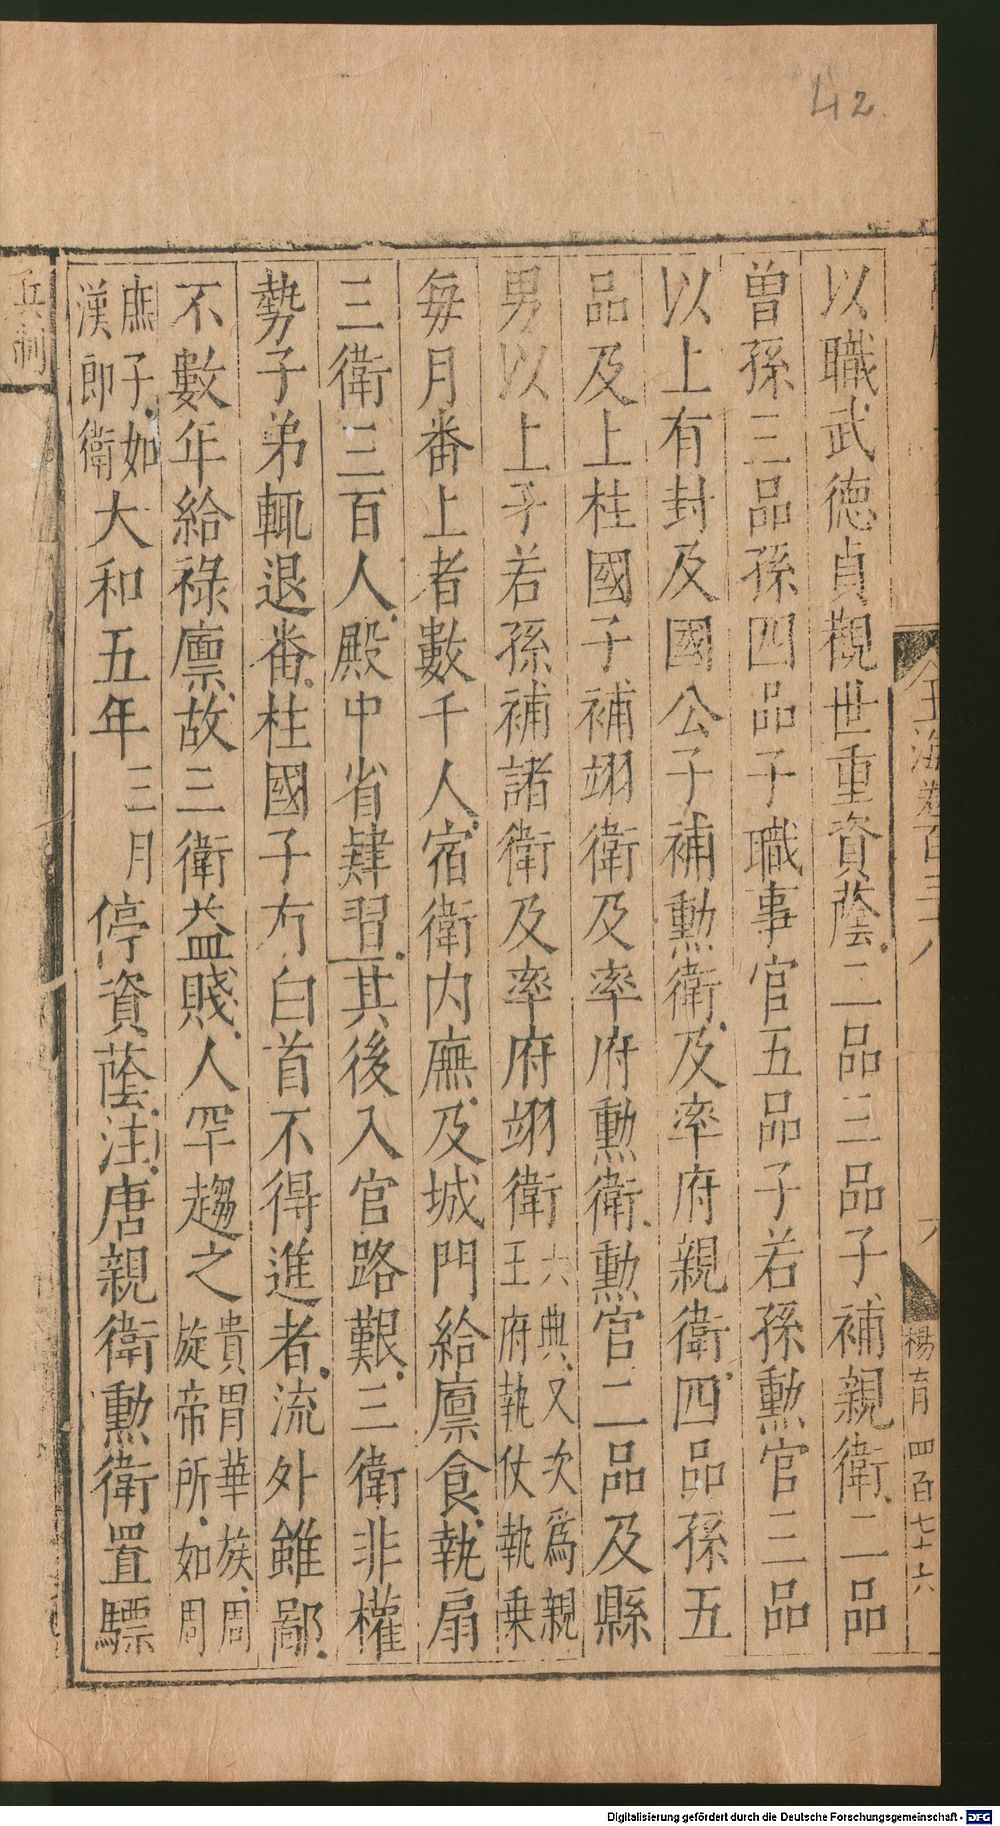 42
以職武德貞觀世重資蔭二品三品子補親衛二品
曾孫三品孫四品子職事官五品子若孫勲官三品
以上有封及國公子補勲衛及率府親衛四品孫五
品及上柱國子補翊衛及率府勲衛勲官二品及縣
男以上子若孫補諸衛及率府翊衛六典又次爲親王府執仗執乗
每月番上者數千人宿衛内廡及城門給廪食執扇
三衛三百人殿中省肄習其後入官路艱三衛非權
勢子弟輒退番柱國子有白首不得進者流外雖鄙
不數年給禄廪故三衛益賤人罕趨之貴胃華族周旋帝所如周
庶子如漢郎衛大和五年三月停資蔭注唐親衛勲衛置驃
兵制
玉海卷百三十八
楊育 四百七十六
Digitalisierung gefördert durch die Deutsche Forschungsgemeinschaft - DFG